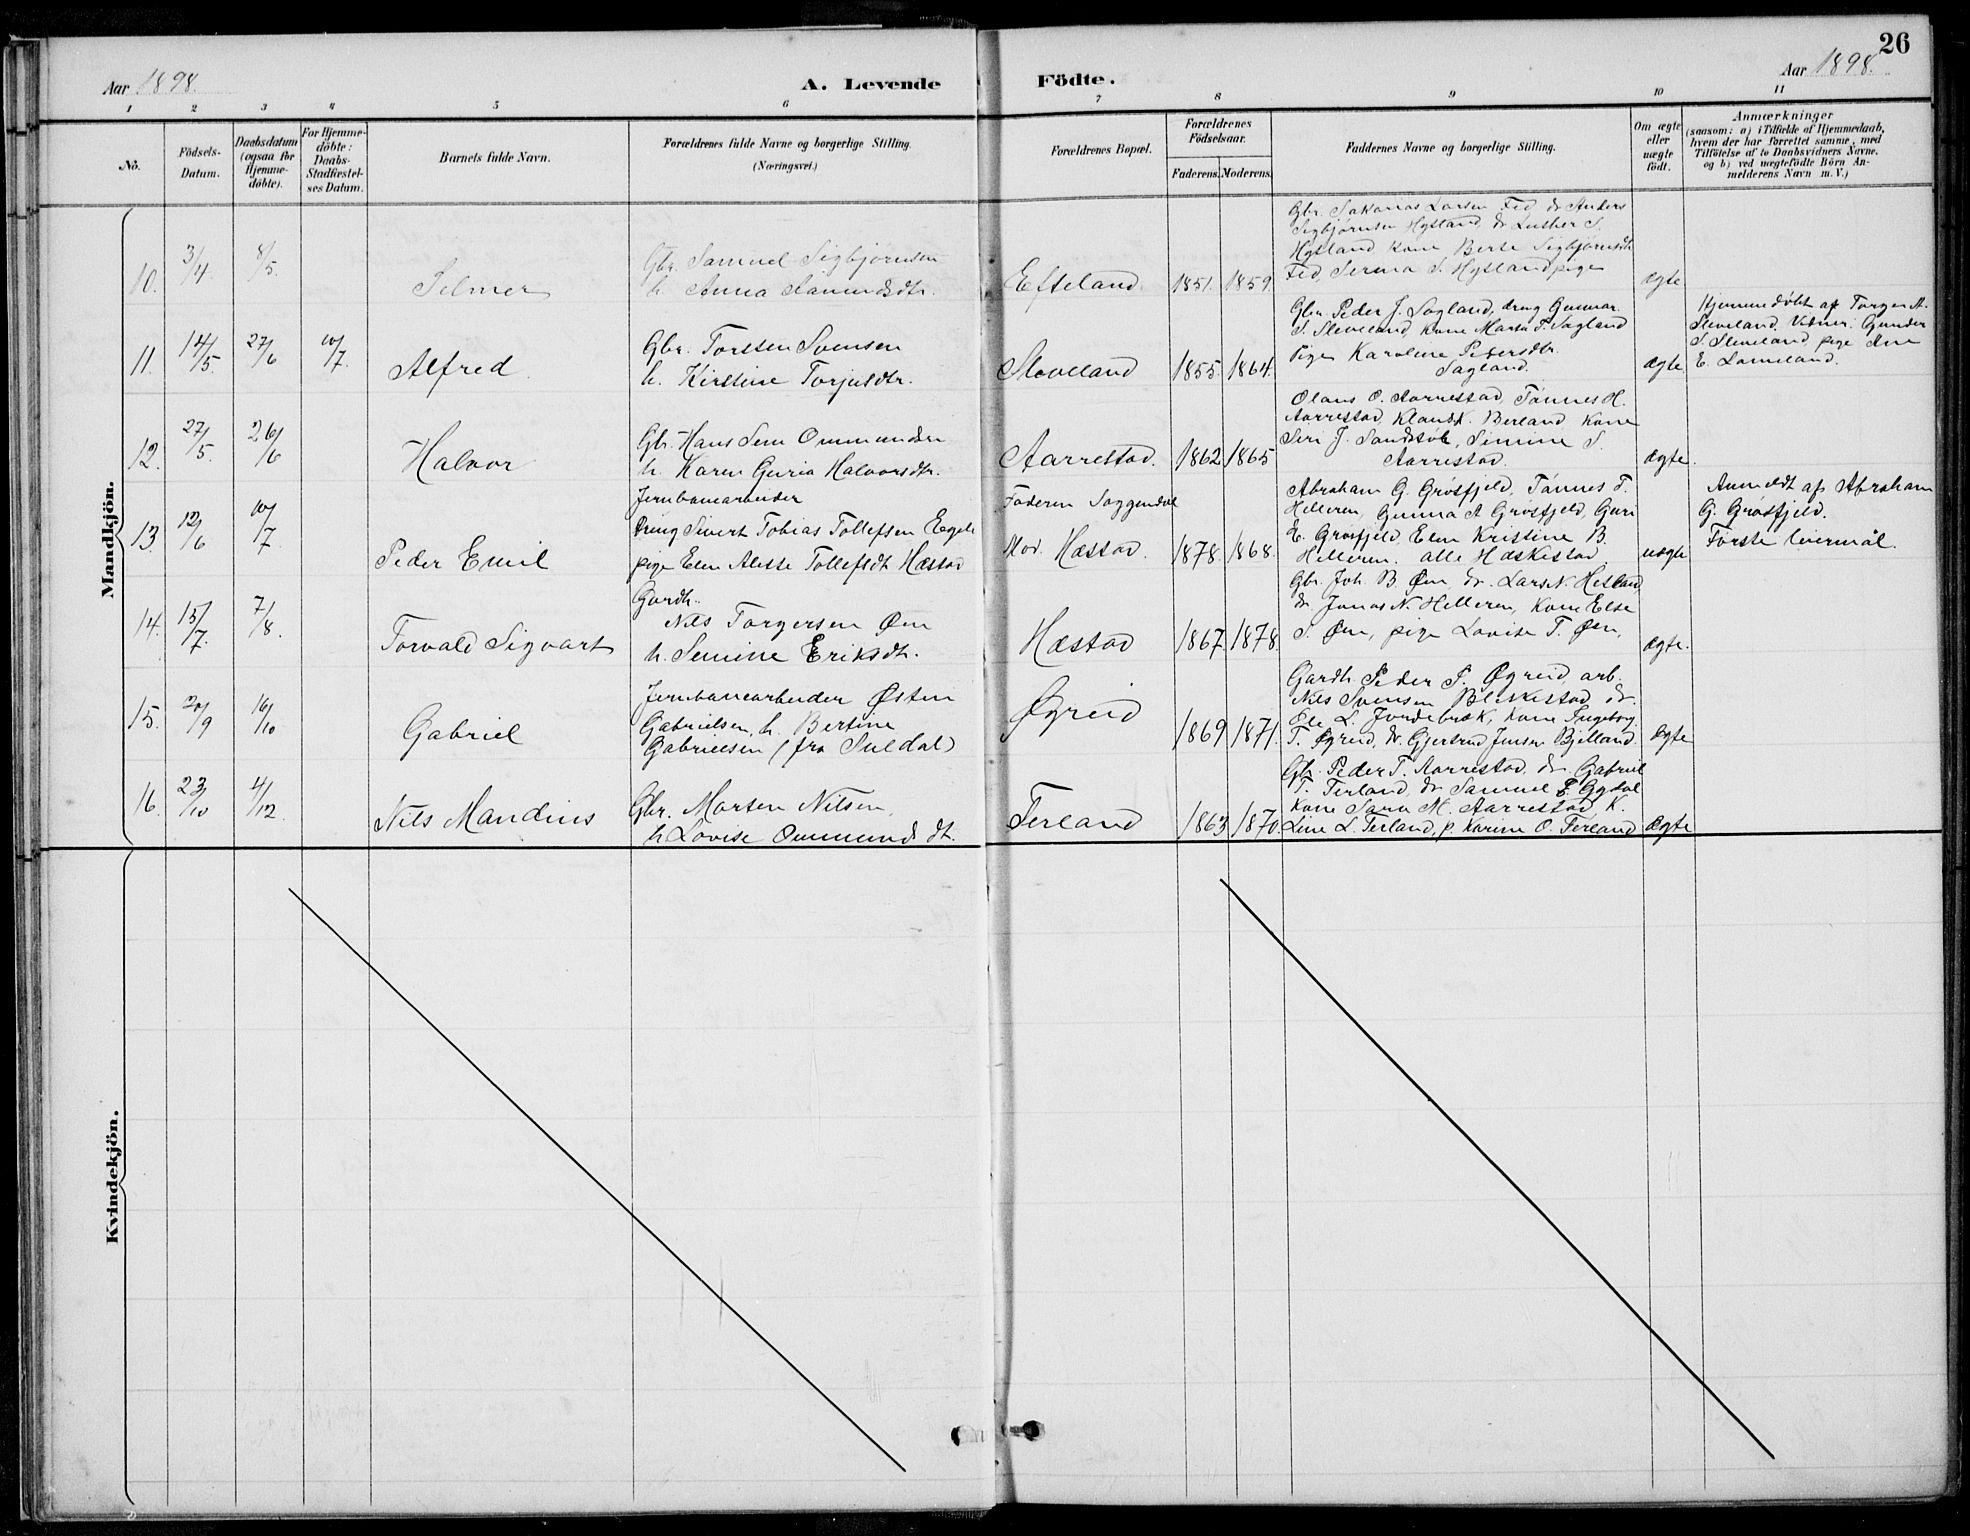 26
Aar 1898.
A. Levende
Födte.
Aar 1898.
1 2 3 4 5 6 7 8 9 10 11
No.
Födsels-
Datum.
Daabsdatum
(ogsaa for
Hjemme-
döbte).
For Hjemme-
döbte:
Daabs-
Stadfæstel-
ses Datum.
Barnets fulde Navn.
Forældrenes fulde Navne og borgerlige Stilling.
(Næringsvei.)
Forældrenes Bopæl.
Forældrenes
Födselsaar.
Faderens. Moderens.
Faddernes Navne og borgerlige Stilling.
Om ægte
eller
uægte
födt.
Anmærkninger
(saasom: a) i Tilfælde af Hjemmedaab,
hvem der har forrettet samme, med
Tilföielse af to Daabsvidners Navne,
og b) ved uægtefödte Börn An-
melderens Navn m. V.)
Mandkjön.
10. 3/4. 8/5.
Selmer
Gbr. Samuel Sigbjörnsen
h. Anna Aamundsdtr.
Efteland 1851 1859
Gbr. Sakarias Larsen Fed dr Anders
Sigbjørnsen Hytland, dr Luther S.
Hytland Kone Berte Sigbjørnsdtr
Fed, Serina S. Hytland pige
ægte
11. 14/5. 27/6 10/7.
Alfred
Gbr. Torsten Svensen
h. Kirstine Torjusdtr.
Sleveland 1855 1864.
Gbr. Peder J. Sagland, dreng Gunnar
S. Sleveland, Kone Marta T. Sagland
Pige Karoline Pedersdtr.
Sagland.
ægte
Hjemmedøbt af Torger A.
Sleveland. Vidner: Gunder
S. Sleveland, pige Ane
E. Lomeland.
12. 27/5. 26/6
Halvor
Gbr. Hans Sem Ommundsen
h. Karen Guria Halvorsdtr.
Aarrestad. 1862 1865
Olaus O. Aarrestad, Tönnes H.
Aarrestad, Berland Kone
Seri J. Sandstöl, Simine S.
Aarrestad.
ægte.
13. 12/6 10/7.
Peder Emil
Jernbanearbeider
dreng Sivert Tobias Tollefsen
pige Elen Tollefsdt Hæstad
Faderen Soggendal
Mod. Hæstad. 1878. 1868.
Abraham G. Grötfjeld, Tönnes T.
Helleren, Gunna A Grötfjeld Guri
E. Grötfjeld Elen Kristine B.
Helleren. alle Hæskestad
uægte
Anmeldt af Abraham
G. Gröstfjeld.
Förste leiermål.
14. 15/7. 7/8.
Torvald Sigvart
Gardb.
Nils Torgersen Øen
h. Semine Eriksdtr.
Hæstad 1867 1878.
Gbr. Joh B Øen dr. Lars N. Hetland
dr. Jonas N. Helleren, Kone Else
S. Øen, pige Lovise T. Øen,
ægte.
15. 20/9 16/10
Gabriel
Jernbanearbeider Østen
Gabrielsen, h. Bertine
Gabrielsen (fra Suldal)
Øgreid 1869 1871.
Gardb. Peder P. Øgreid, arb.
Nils Svensen Blekestad dr.
Ole L. Jordebræk, Kone Ingeborg
T. Øgreid, dr. Gjertrud Jensen Bjelland.
ægte
16. 23/10 4/12.
Nils Mandius
Gbr. Morten Nilsen
h. Lovise Ommunds dt.
Terland 1863 1870.
Gbr. Peder T. Aarrestad. dr Gabriel
T. Terland, dr Samuel E. Gydal
Kone Sara M. Aarrestad K.
Line L. Terland, p. Karine O. Terland
ægte
Kvindekjön.